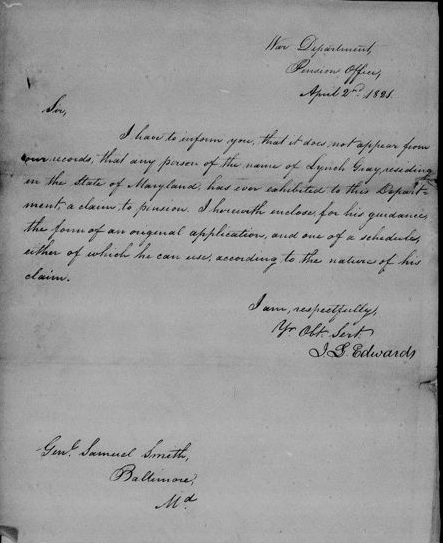 War Department,
Pension Office,
April 2nd. 1821
Sir,
I have to inform you, that it does not appear from
our records, that any person of the name of Lynch Gray, residing
in the State of Maryland, has ever exhibited to this Depart-
ment, a claim to pension. I herewith enclose for his guidance,
the form of an original application, and one of a schedule,
either of which he can use, according to the nature of his
claim.
I am, respectfully,
Yr. Obt. Servt.
J. L. Edwards
Genl. Samuel Smith,
Baltimore,
Md